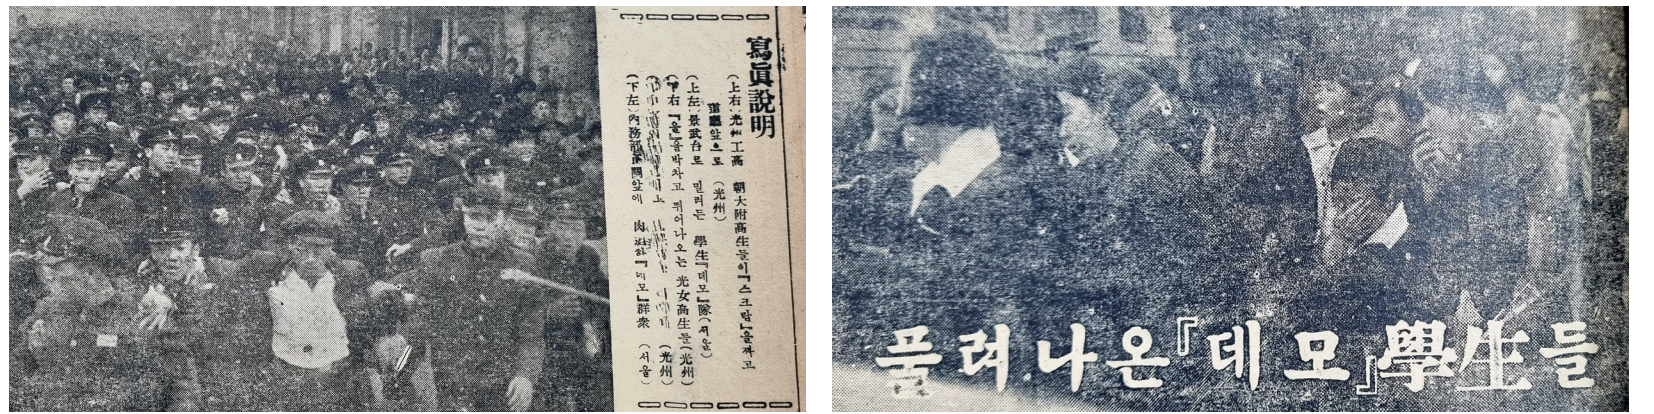 寫眞說明
(上右)光州工高 朝大附高生들이『스크람』을짜고
道廳앞으로 (光州)
(上左)景武台로 밀려든 學生『데모』隊(서울)
(下右『을』을박차고 뛰어나오는 光女高生들(光州)
(光州)
(下左)內務部 앞에 肉 『데모』群衆 (서울)
풀려나온『데모』學生들